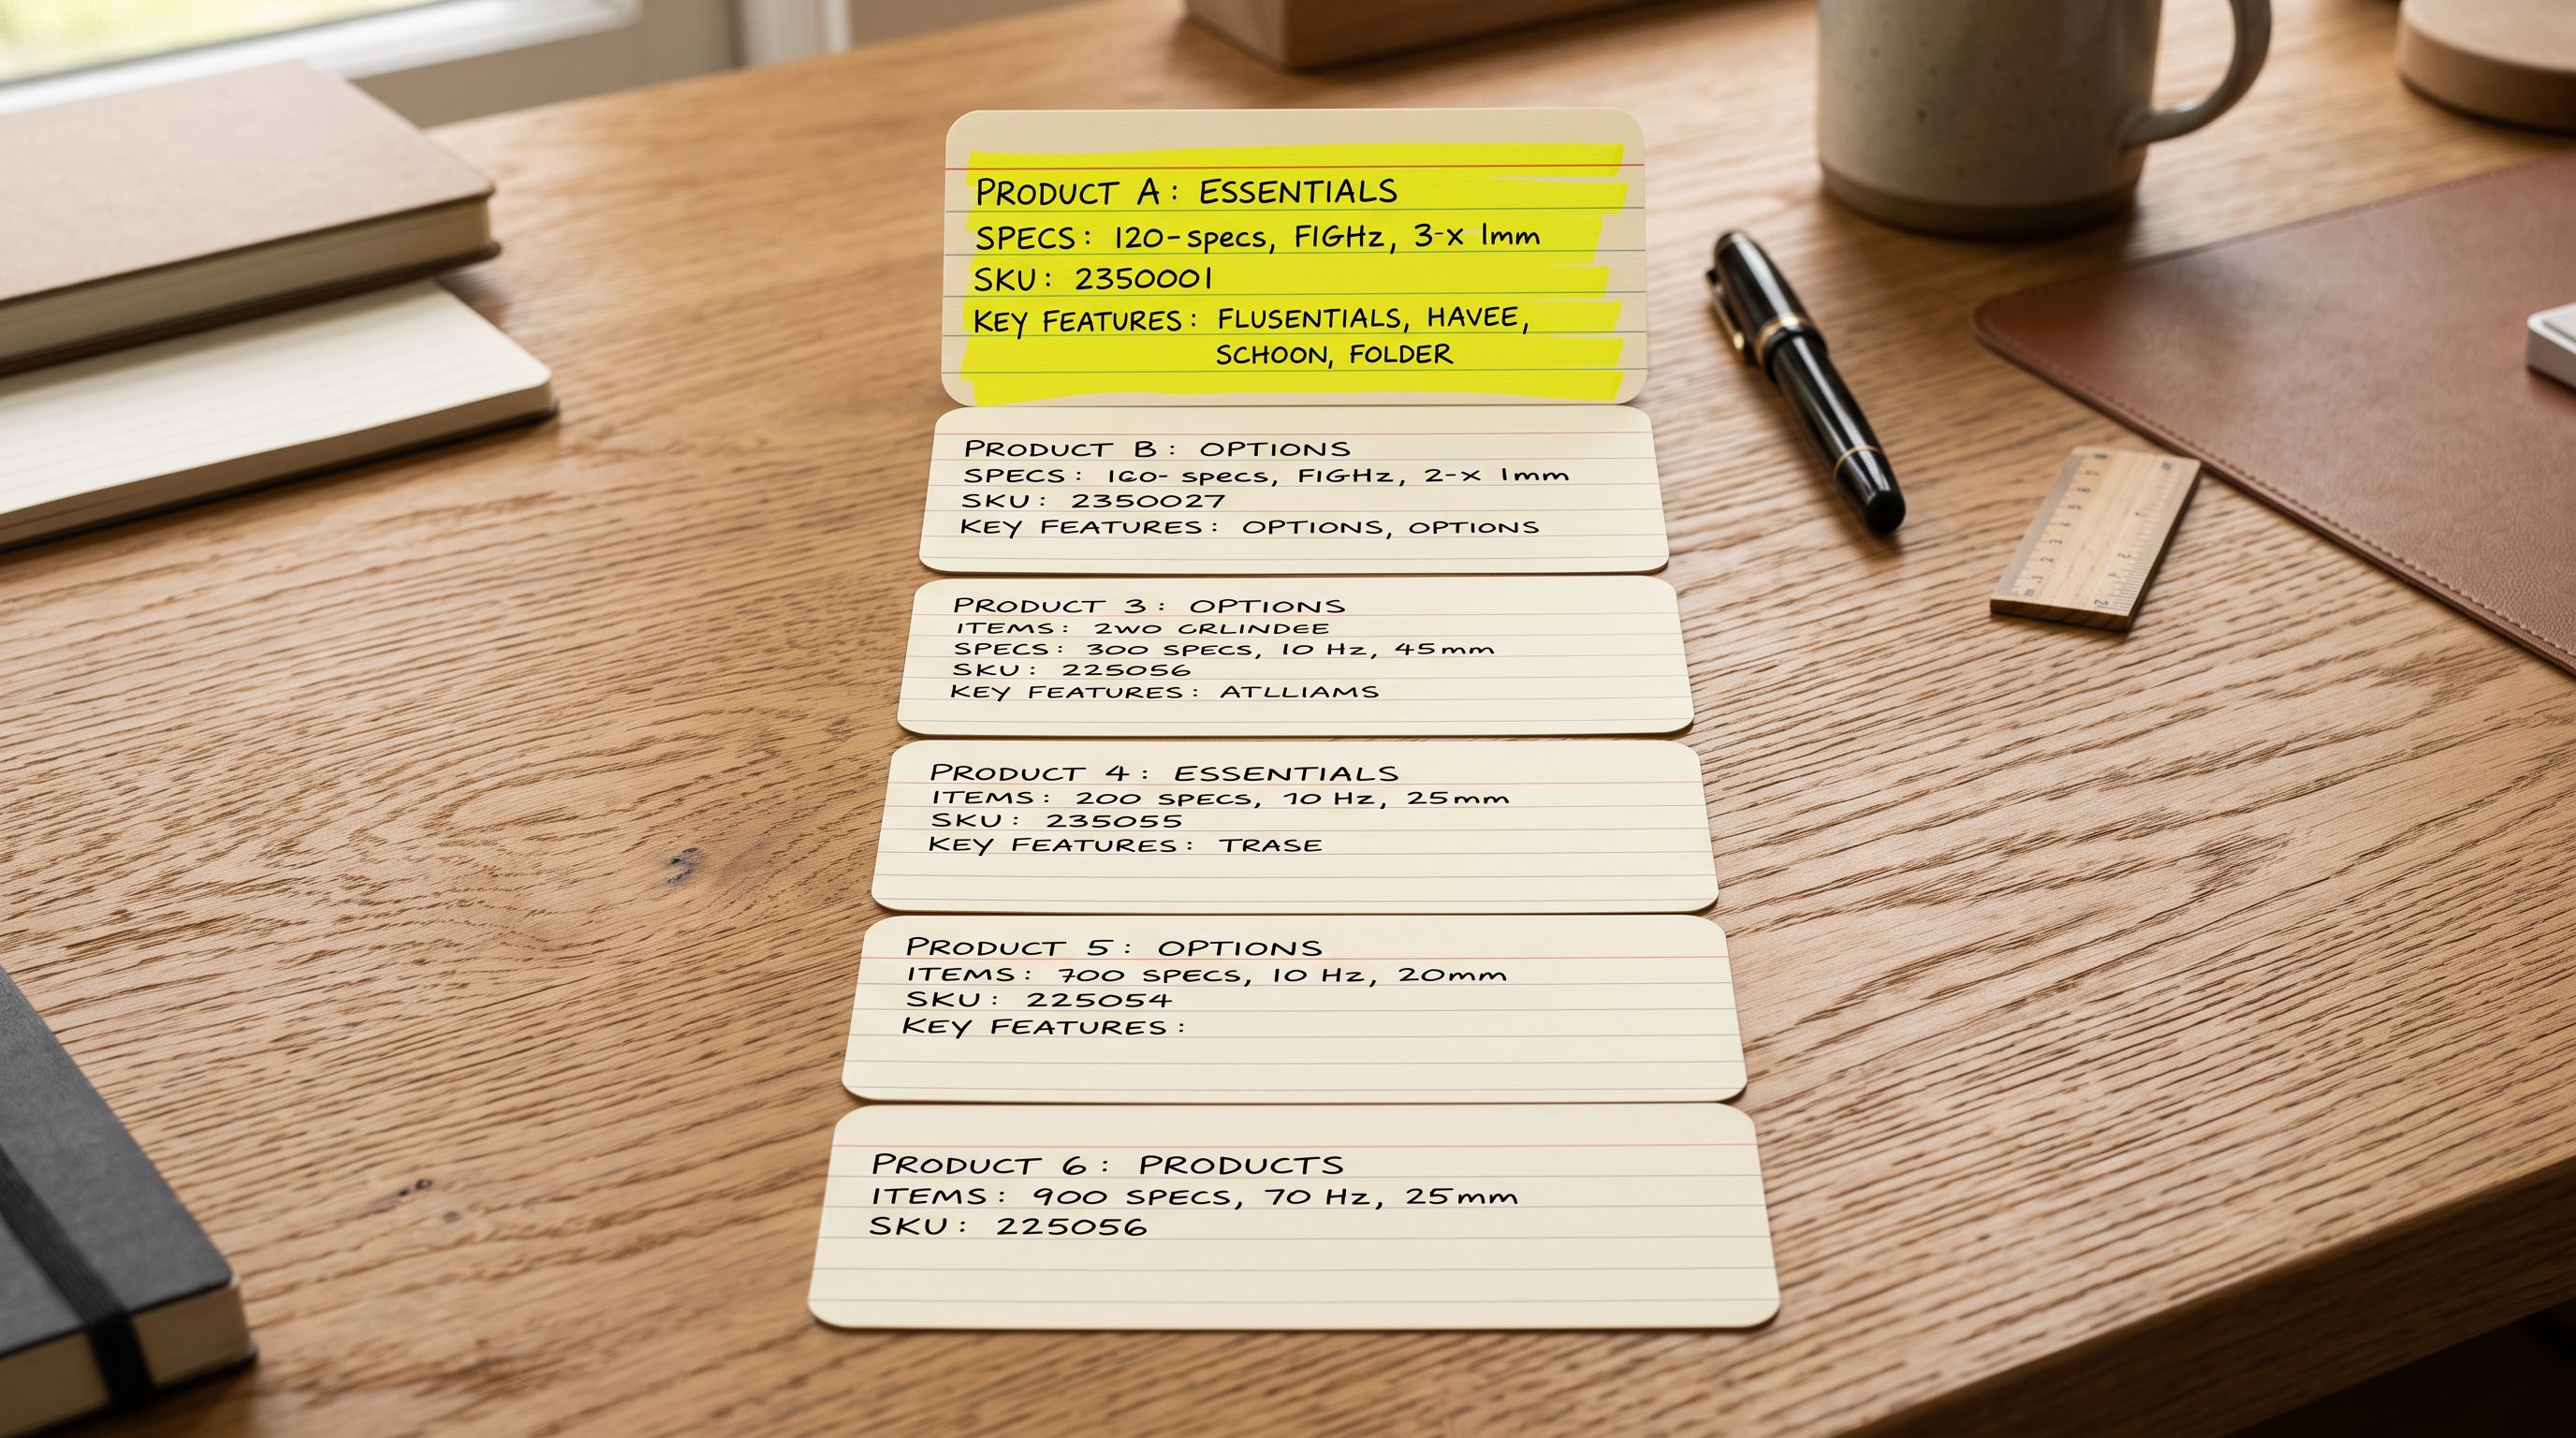 PRODUCT A: ESSENTIALS
SPECS: 120-specs, FIGHz, 3-x 1mm
SKU: 2350001
KEY FEATURES: FLUSENTIALS, HAVEE,
SCHOON, FOLDER
PRODUCT B: OPTIONS
SPECS: 160- specs, FIGHz, 2-x 1mm
SKU: 2350027
KEY FEATURES: OPTIONS, OPTIONS
PRODUCT 3: OPTIONS
ITEMS: 2WO CRLINDEE
SPECS: 300 SPECS, 10 Hz, 45mm
SKU: 225056
KEY FEATURES: ATLLIAMS
PRODUCT 4: ESSENTIALS
ITEMS: 200 SPECS, 10 Hz, 25mm
SKU: 235055
KEY FEATURES: TRASE
PRODUCT 5: OPTIONS
ITEMS: 700 SPECS, 10 Hz, 20mm
SKU: 225054
KEY FEATURES:
PRODUCT 6: PRODUCTS
ITEMS: 900 SPECS, 70 Hz, 25mm
SKU: 225056